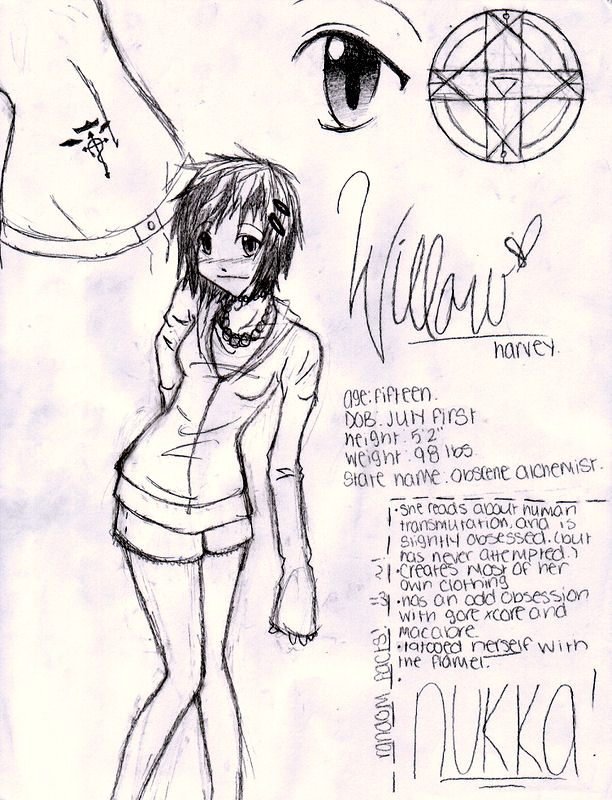 Willow
harvey.
age: fifteen.
DOB: July first
height: 5'2"
weight: 98 lbs.
state name: obscene alchemist.
random facts! =3
• she reads about human
transmutation, and is
slightly obsessed. (but
has never attempted.)
• creates most of her
own clothing
• has an odd obsession
with gore xcore and
macabre.
• tatooed herself with
the flamel.
•
nukka!